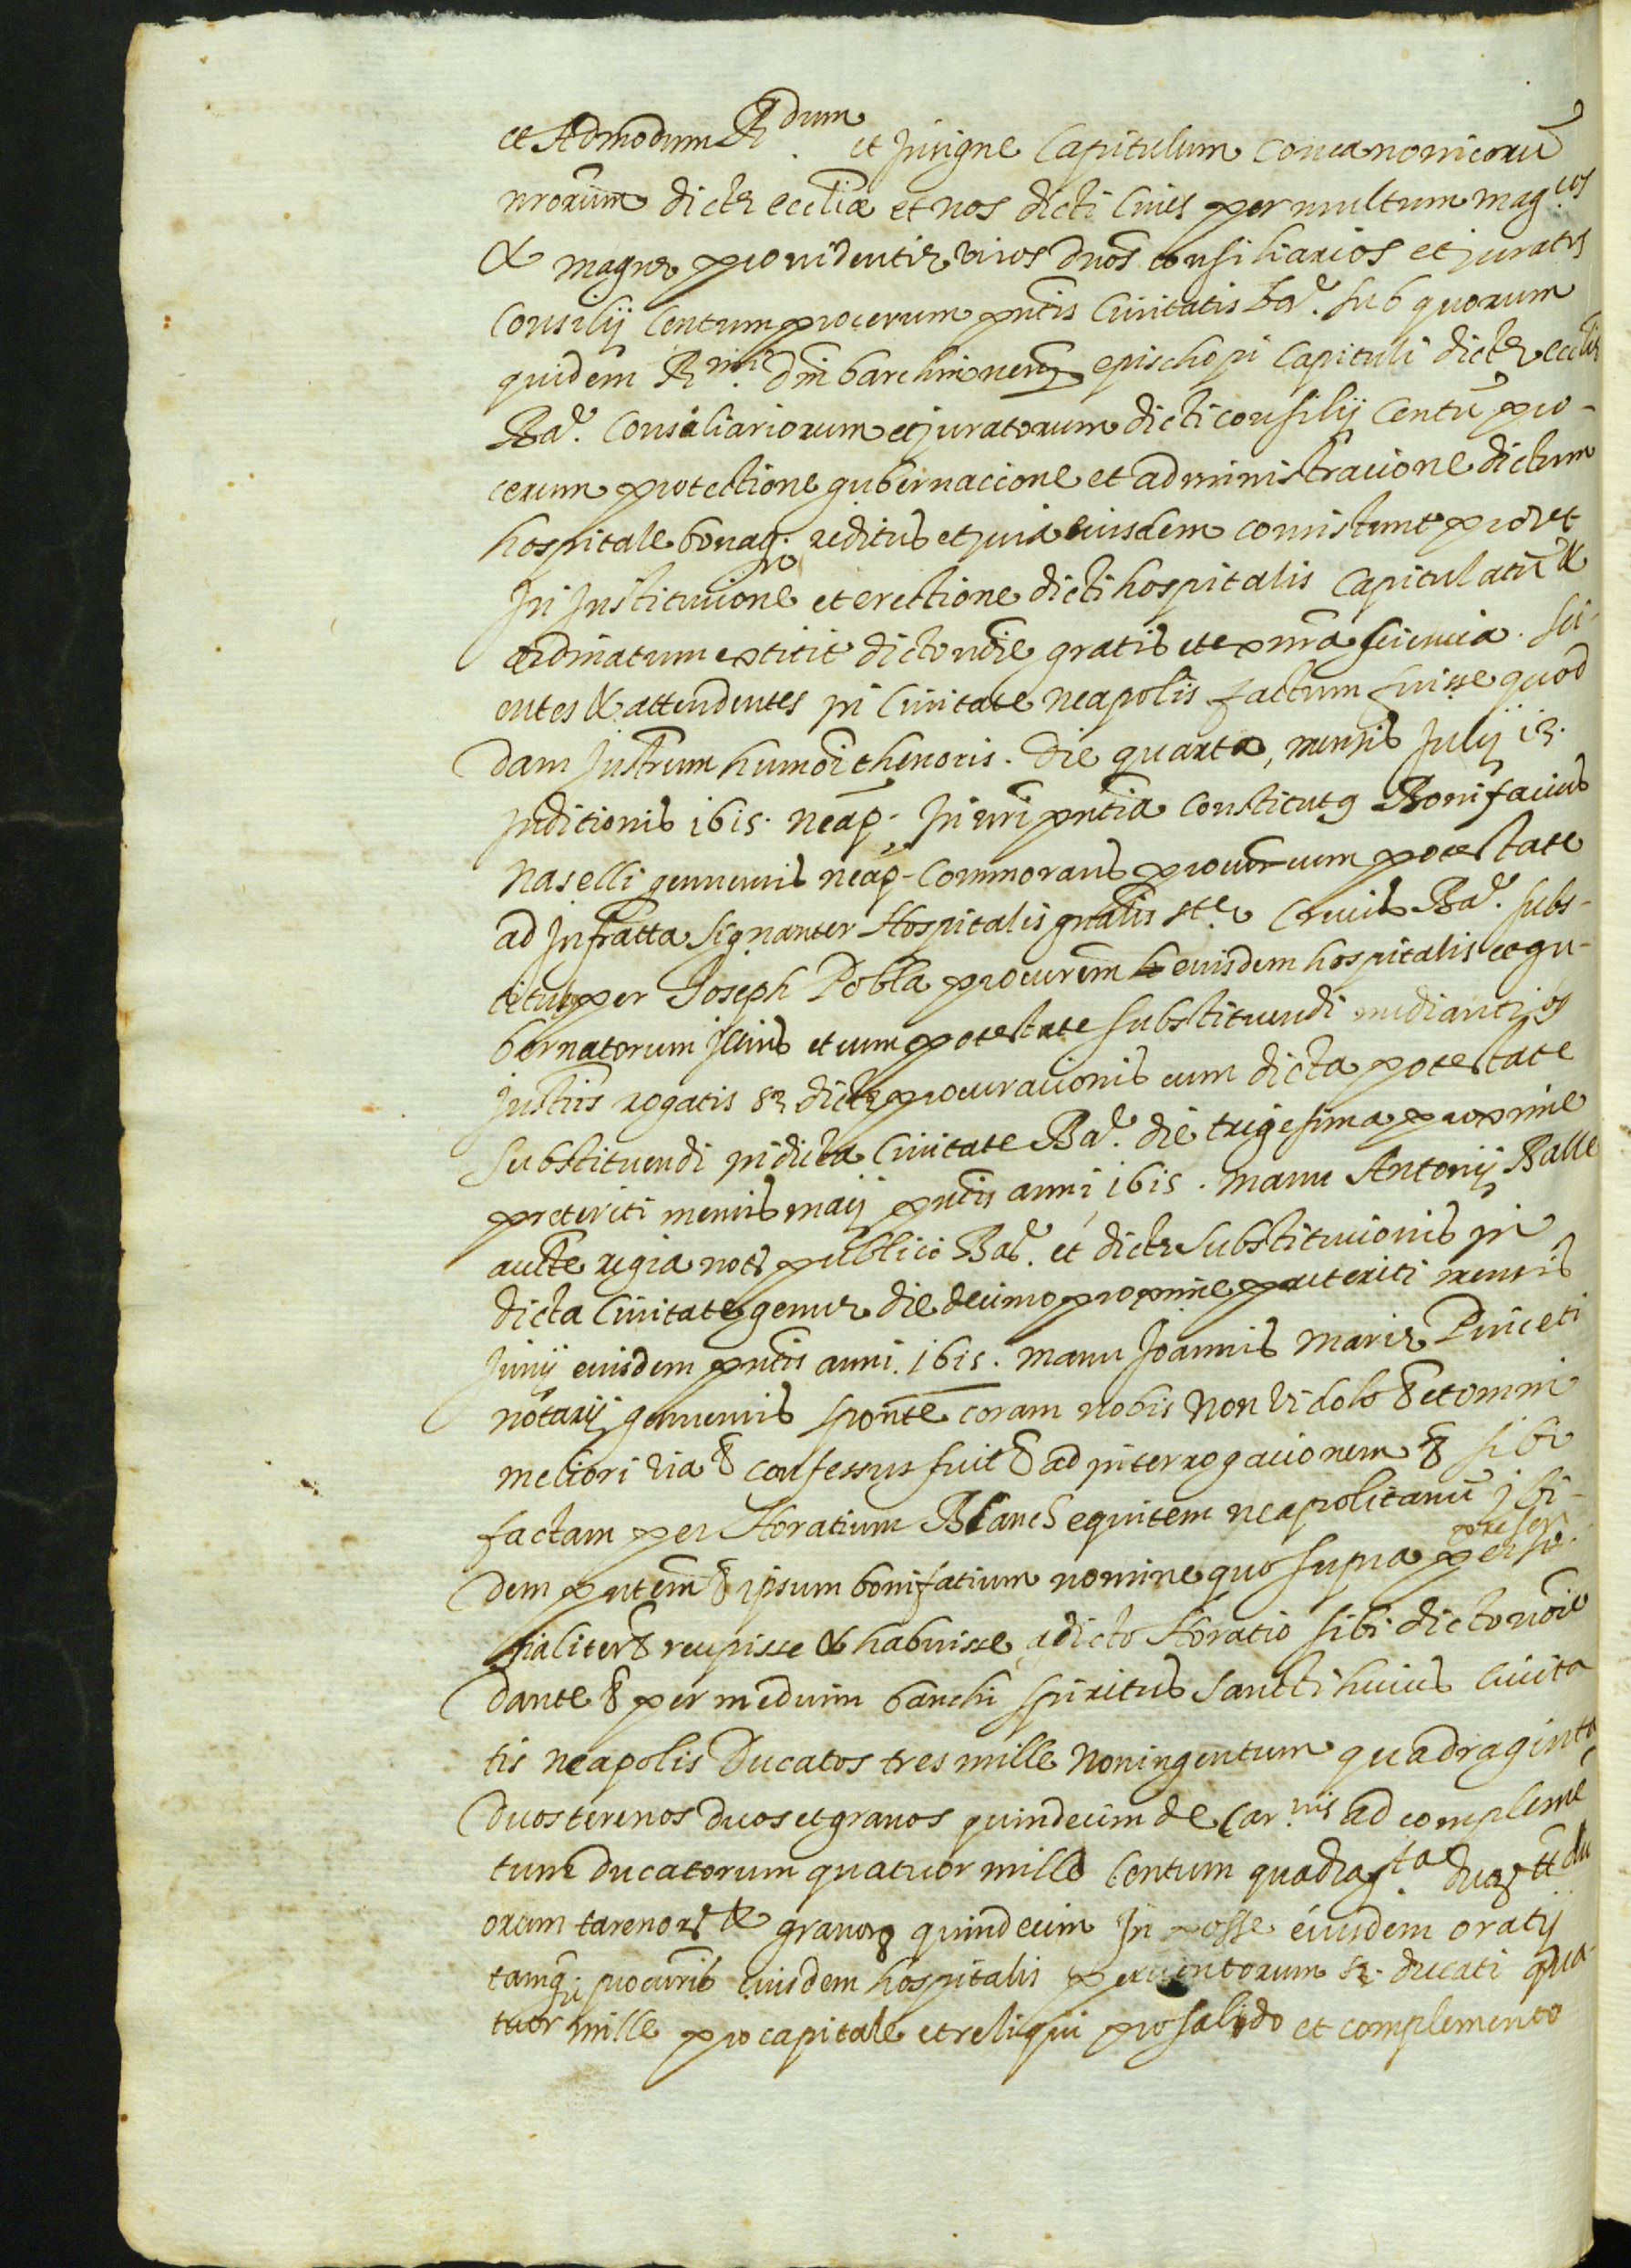 et Admodum R.dum et Insigne Capitulum concanonicorū
nr̄orum dictę eccl̄iæ et nos dicti Cives permultum mag.cos
& magnę providentię viros dn̄os consiliarios et juratos
Consilij Centum procerum pn̄tis Civitatis Ba͂. sub quorum
quidem R.mi Dn̄i barchinonen̄ epischopi Capituli dictę eccl̄ię
Ba͂. Consiliariorum et juratorum dicti consilij Centū pro-
cerum protectione gubernacione et administracione dictum
hospitale bonaq. reditus et jura eiusdem consistunt prout
In Institucione et erectione dicti hospitalis Capitulatū &
ordinatum extitit dicto nōie gratis et ex nr̄a sciencia. Sci-
entes & attendentes in Civitate neapolis factum fuisse quod
dam Instrum humōi thenoris. Die quarta, mensis Julij 13.
Inditionis 1615. neap. In nr̄i pn̄tia constitutꝰ Bonifacius
naselli genuensis neap. Commorans procur̄ cum potestate
ad Infratta signanter Hospitalis gn̄alis Ste. Crucis Ba͂. subs-
titutꝰ per Joseph Pobla procurēm eiusdem hospitalis et gu-
bernatorum illius et cum potestate substituendi mediantibꝰ
Inst̄is rogatis sꝫ dictę procuracionis cum dicta potestate
substituendi in dicta Civitate Ba͂. die trigesima proxime
preteriti mensis maij pn̄tis anni 1615. manu Antonij Batlle
autte regia not̄ publico Ba͂. et dictę substitucionis in
dicta Civitate genuę die decimo proxime preteriti mensis
Junij eiusdem pn̄tis anni. 1615. manu Joannis Marię Pinceti
notarij genuensis sponte coram nobis non vi dolo & et omni
meliori via & confessus fuit & ad interrogacionem & sibi
factam per Horatium Blanch equitem neapolitanū ibi-
dem pn̄tem & ipsum bonifatium nomine quo supra prese per so-
nialiter & recepisse & habuisse a dicto Horatio sibi dicto nōie
dante & per medium banchi spiritus sancti huius Civita
tis neapolis Ducatos tres mille noningentum quadraginta
duos terenos duos et granos quindecim de Car.nis ad complemē
tum ducatorum quatuor mille Centum quadrag.ta duoꝝ tt du
orum tarenorꝝ & granorꝝ quindecim In posse eiusdem oratij
tamq. procuris eiusdem hospitalis perventorum sꝫ. ducati qua-
tuor mille pro capitale et reliqui pro salido et complemento